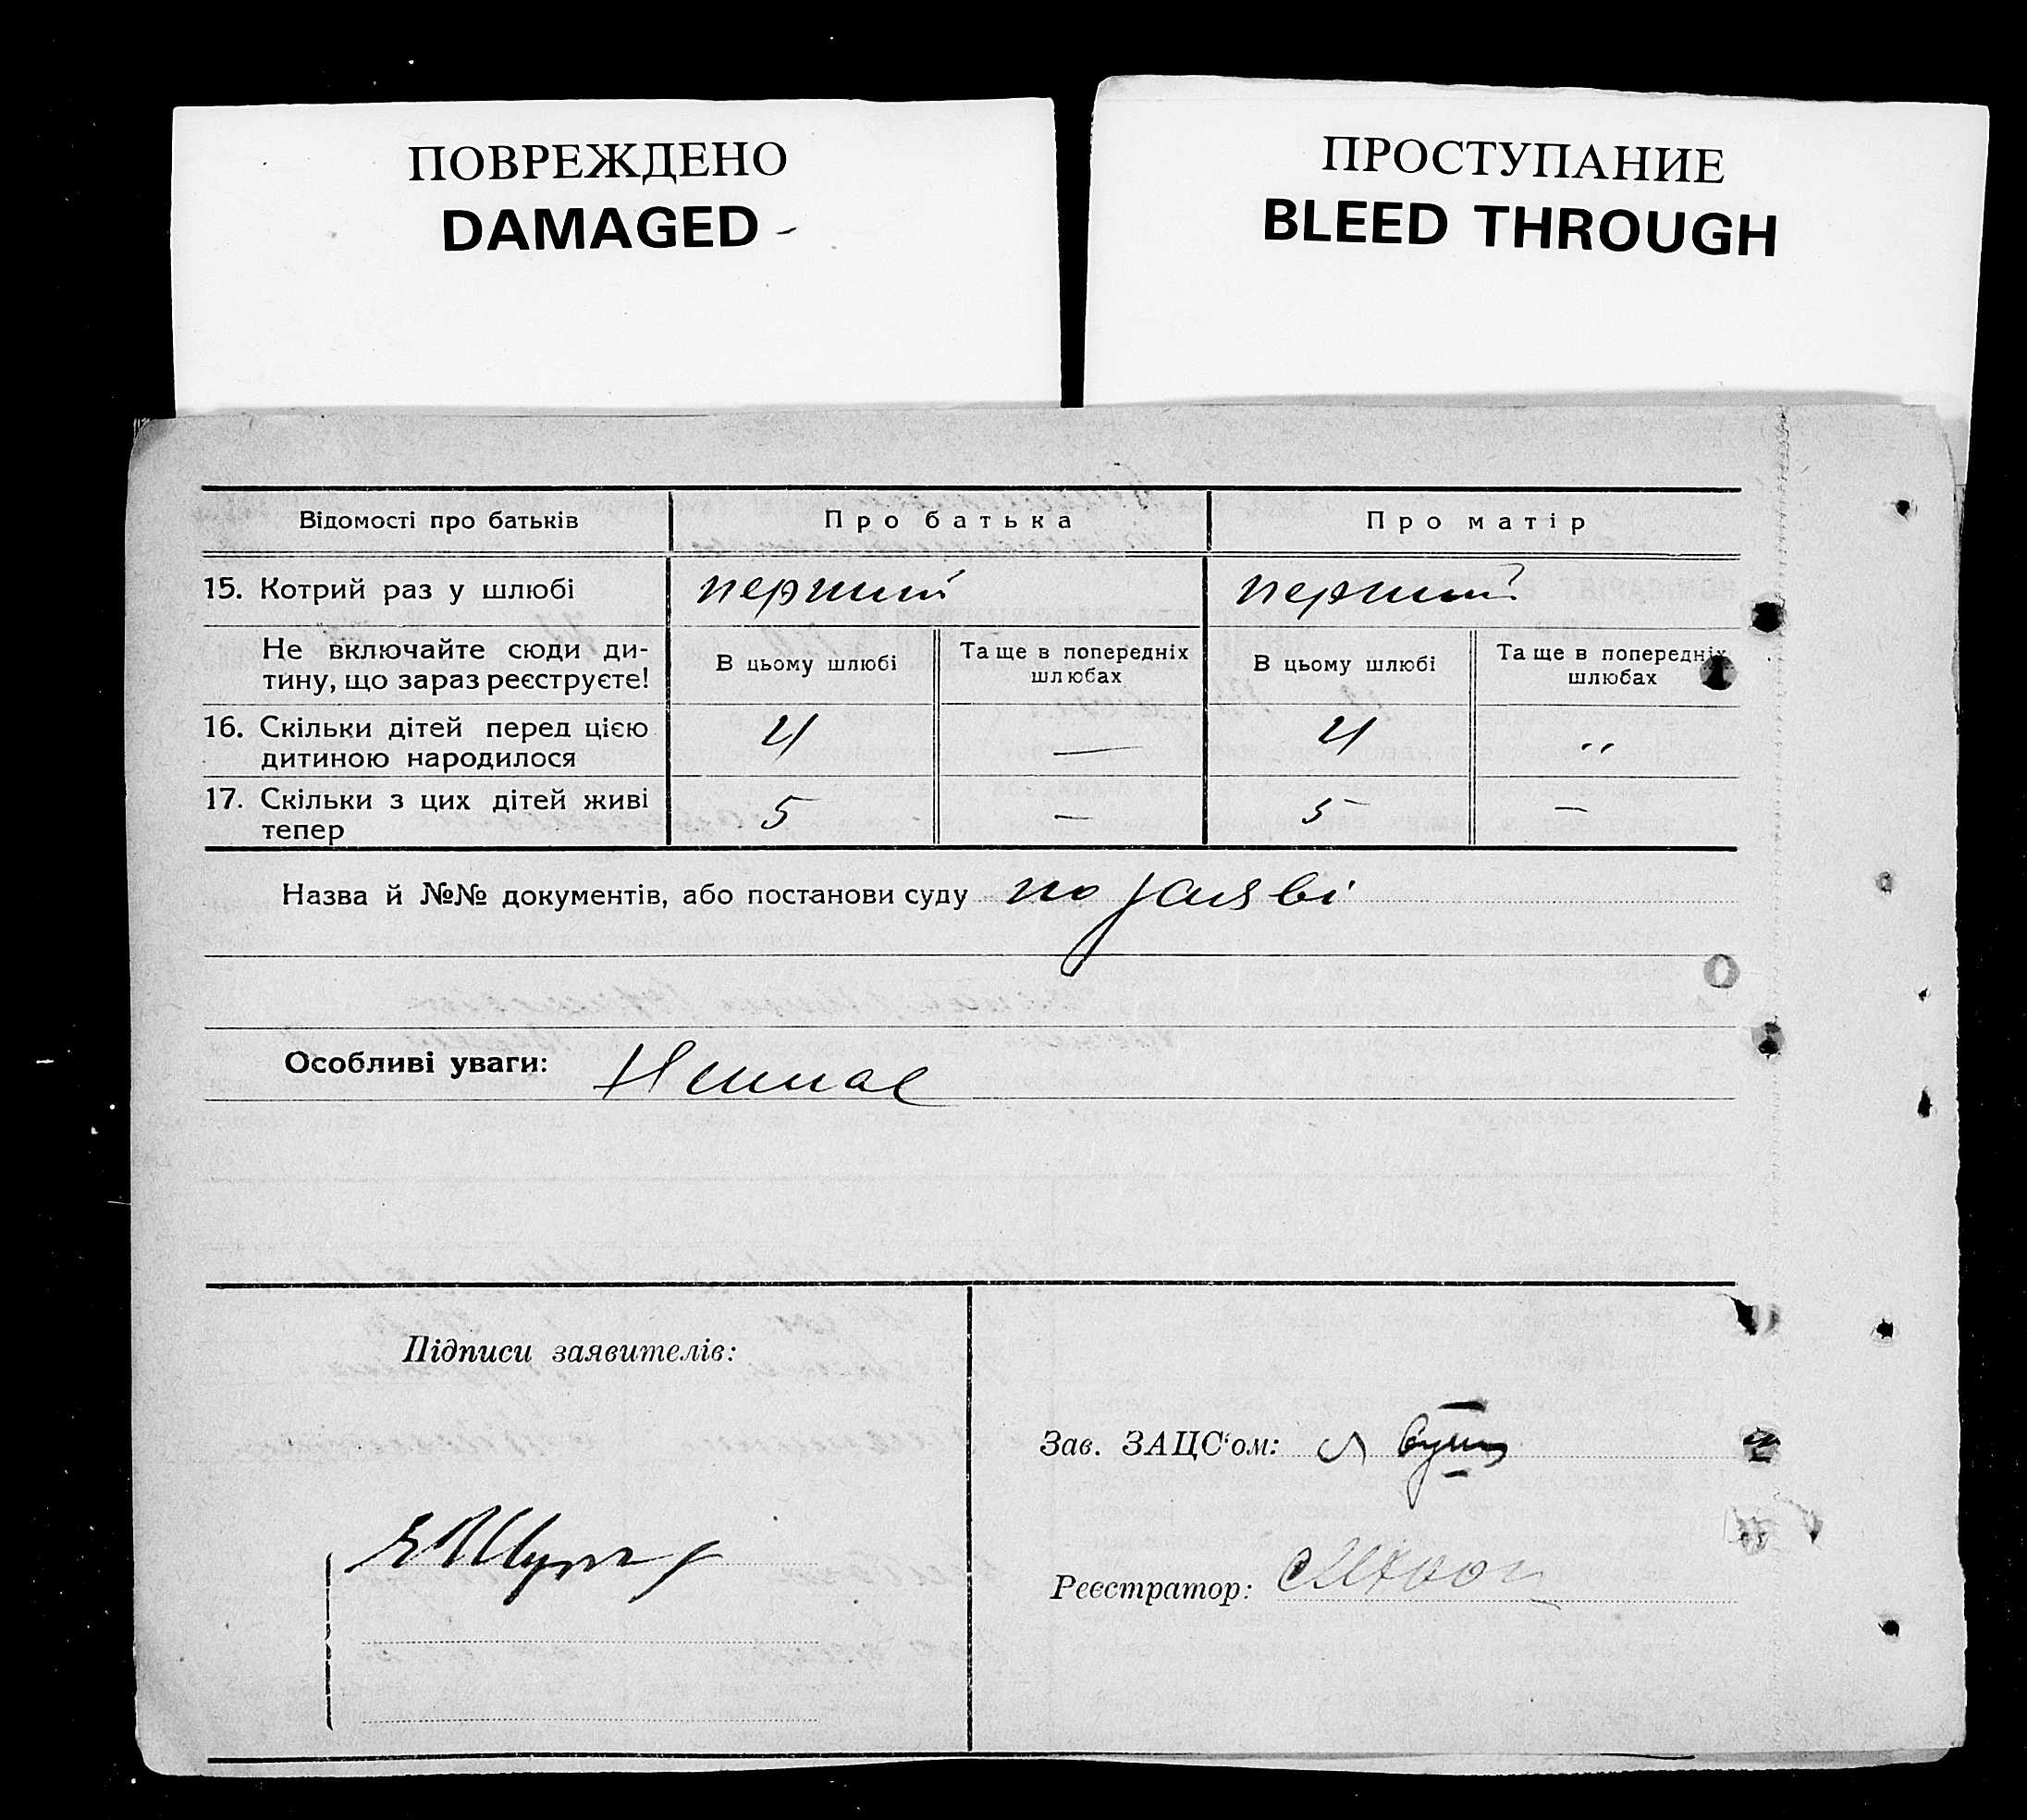 ПОВРЕЖДЕНО
DAMAGED
ПРОСТУПАНИЕ
BLEED THROUGH
Відомості про батьків
Про батька
Про матір
15. Котрий раз у шлюбі
перший
перший
Не включайте сюди ди-
тину, що зараз реєструєте!
В цьому шлюбі
Та ще в попередніх
шлюбах
В цьому шлюбі
Та ще в попередніх
шлюбах
16. Скільки дітей перед цією
дитиною народилося
4
—
4
״
17. Скільки з цих дітей живі
тепер
5
—
5
—
Назва й №№ документів, або постанови суду по заяві
Особливі уваги: Немає
Підписи заявителів:
Зав. ЗАЦС‘ом:
Реєстратор: